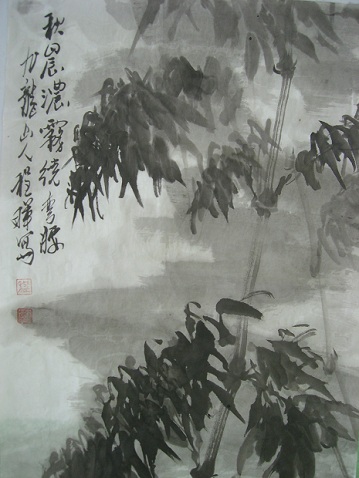 秋晨濃霧繞
九龍山人程輝寫